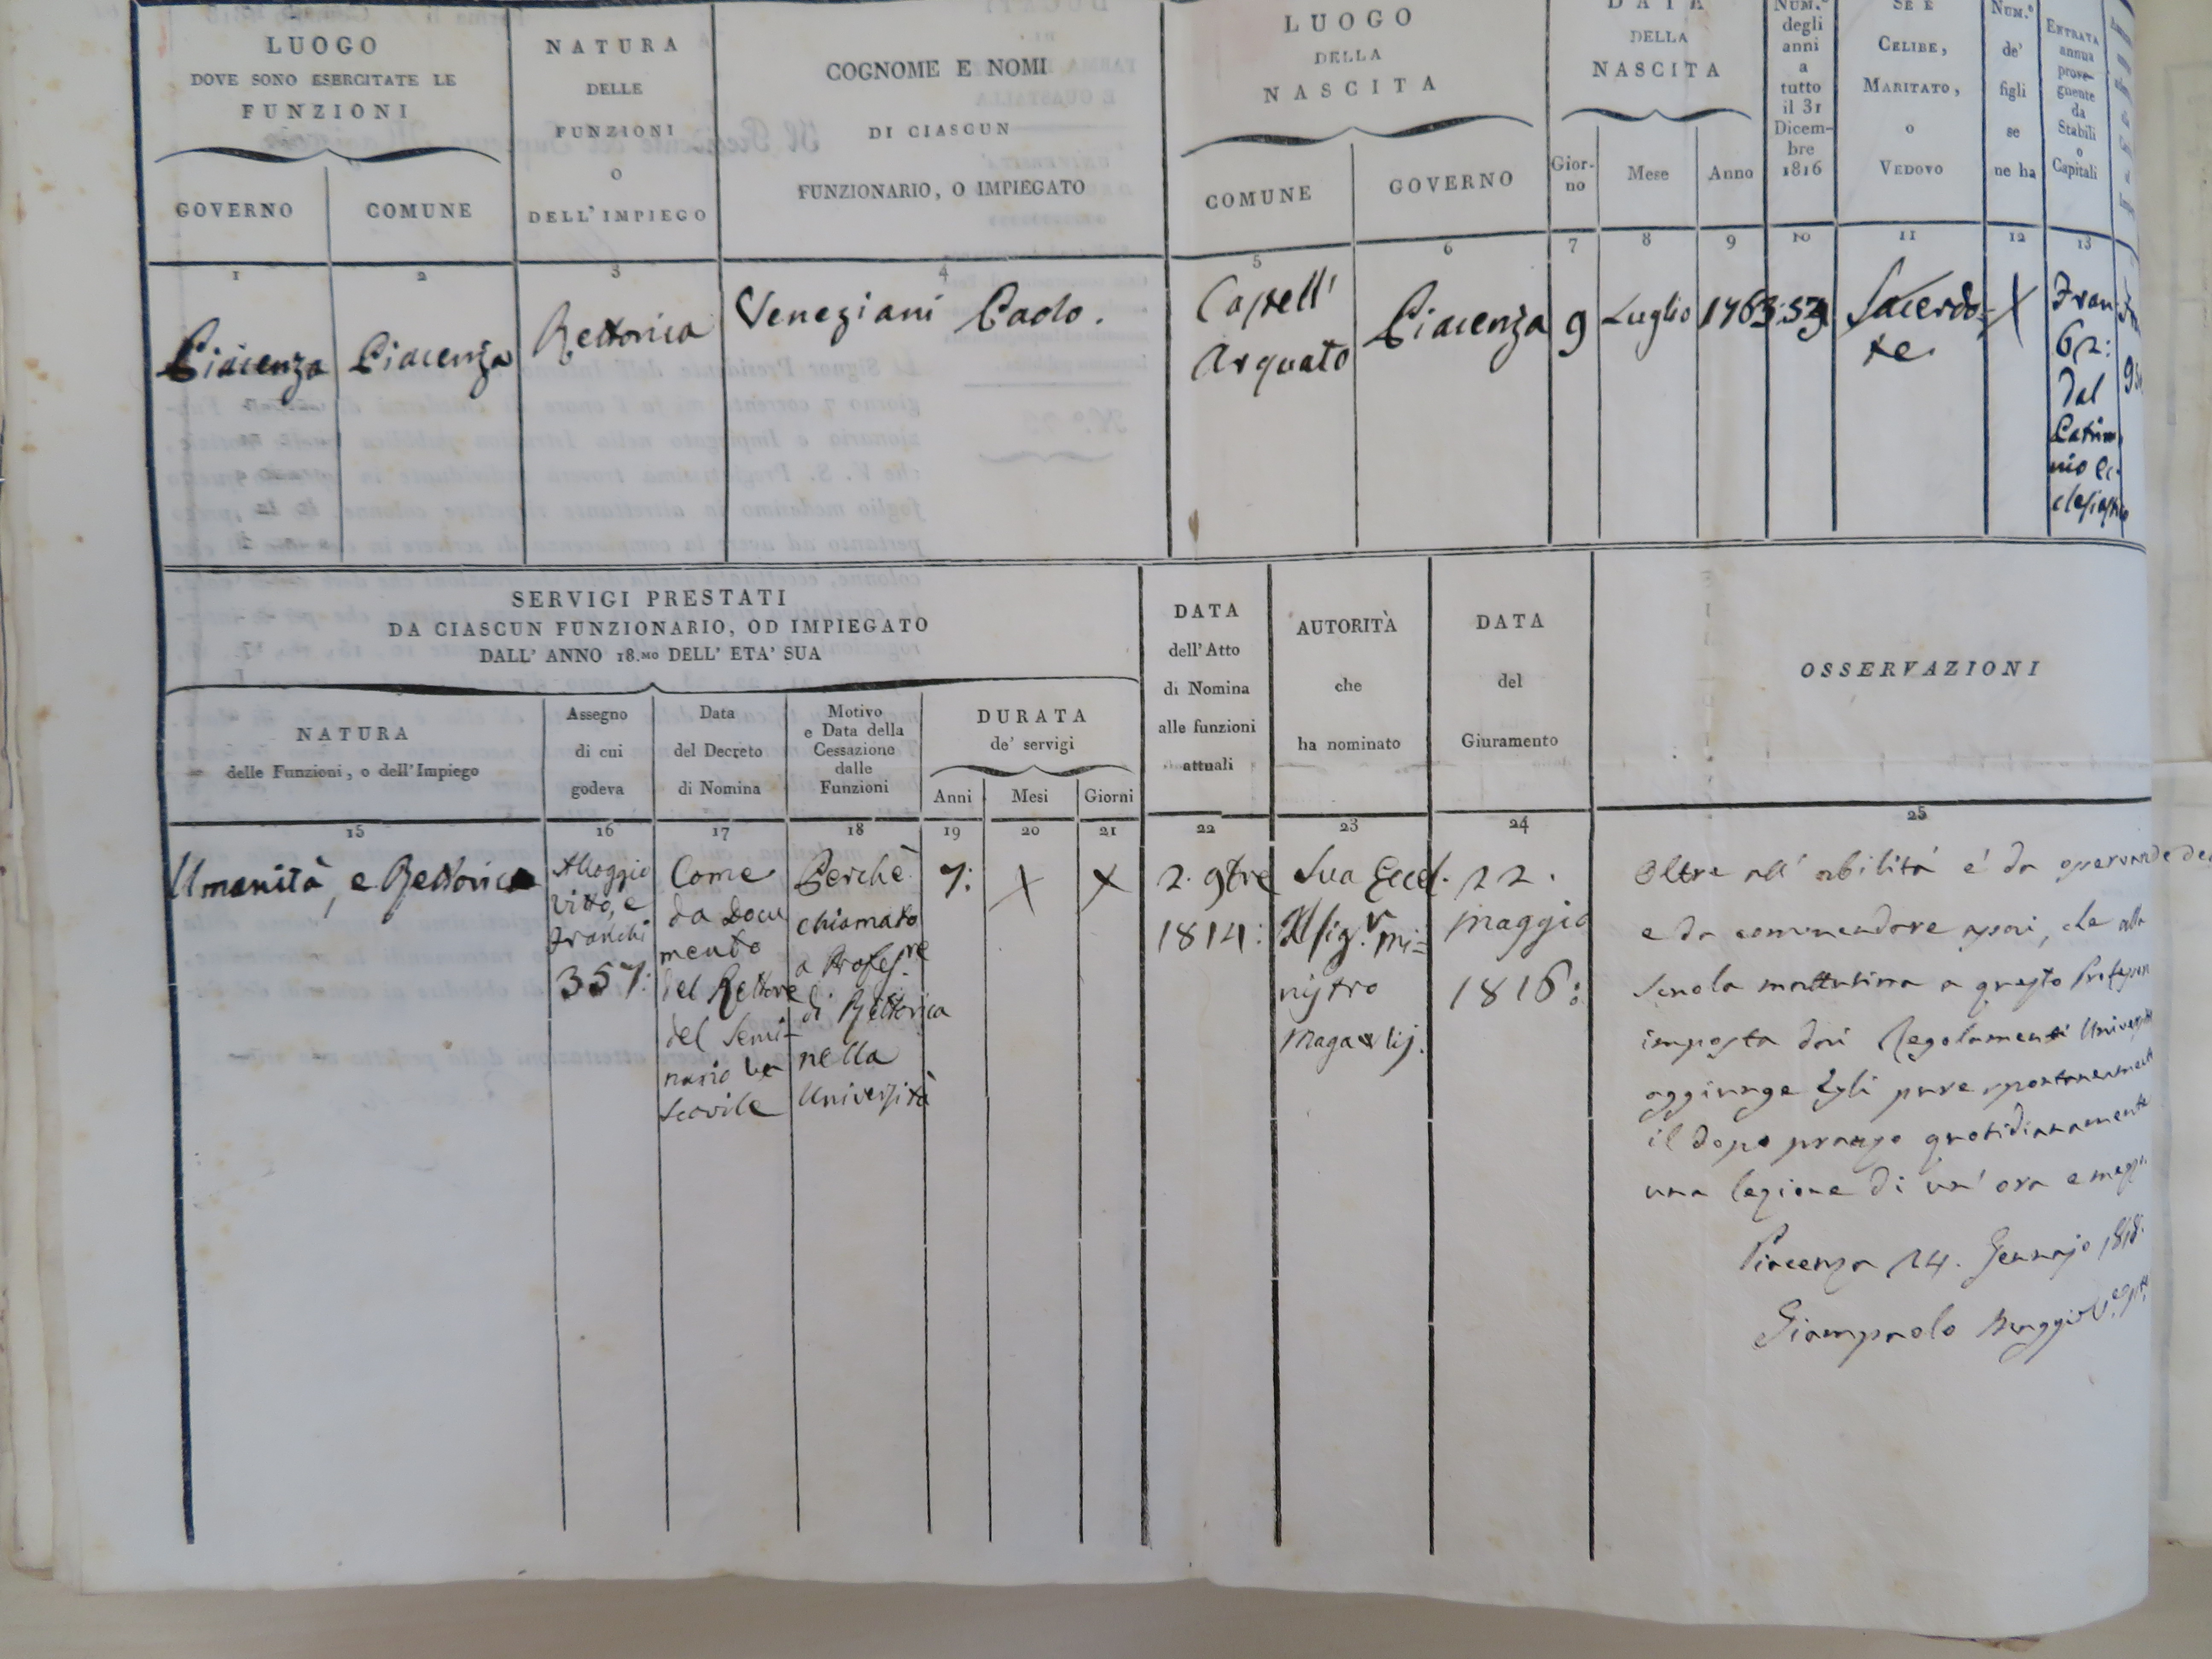 LUOGO
DOVE SONO ESERCITATE LE
FUNZIONI
GOVERNO
COMUNE
NATURA
DELLE
FUNZIONI
O
DELL' IMPIEGO
COGNOME E NOMI
DI CIASCUN
FUNZIONARIO, O IMPIEGATO
LUOGO
DELLA
NASCITA
COMUNE
GOVERNO
DATA
DELLA
NASCITA
Gior-
no
Mese
Anno
NUM.º
degli
anni
a
tutto
il 31
Dicem-
bre
1816
SE È
CELIBE,
MARITATO,
o
VEDOVO
NUM.º
de'
figli
se
ne ha
ENTRATA
annua
prove-
gnente
da
Stabili
o
Capitali
1 2 3 4 5 6 7 8 9 10 11 12 13
Piacenza
Piacenza
Rettorica
Veneziani Paolo.
Castell'
Arquato
Piacenza
9
Luglio
1763:
53
Sacerdo-
te.
X
Fran
62:
Dal
Patrim
nio Ec-
clesiastico
SERVIGI PRESTATI
DA CIASCUN FUNZIONARIO, OD IMPIEGATO
DALL' ANNO 18.MO DELL' ETA' SUA
NATURA
delle Funzioni, o dell'Impiego
Assegno
di cui
godeva
Data
del Decreto
di Nomina
Motivo
e Data della
Cessazione
dalle
Funzioni
DURATA
de' servigi
Anni
Mesi
Giorni
DATA
dell'Atto
di Nomina
alle funzioni
attuali
AUTORITÀ
che
ha nominato
DATA
del
Giuramento
OSSERVAZIONI
15 16 17 18 19 20 21 22 23 24 25
Umanità, e Rettorica
Alloggio
vitto, e
franchi
357:
Come
da Docu
mento
del Rettore
del Semi-
nario Ve
scovile
Perchè
chiamato
a Profess.re
di Rettorica
nella
Università
7:
X
X
2. 9bre
1814:
Sua Eccel.
Il Sig.r Mi-
nistro
Magawlij.
22.
Maggio
1816:
Oltre all' abilità è da
e da commendare assai, che alla
Scuola mattutina a questo Professore
imposta dai Regolamenti
aggiunge Egli pure spontaneamente
il dopo pranzo quotidianamente
una lezione di un' ora e mezza.
Piacenza 24. Gennajo 1818.
Giampaolo Maggi